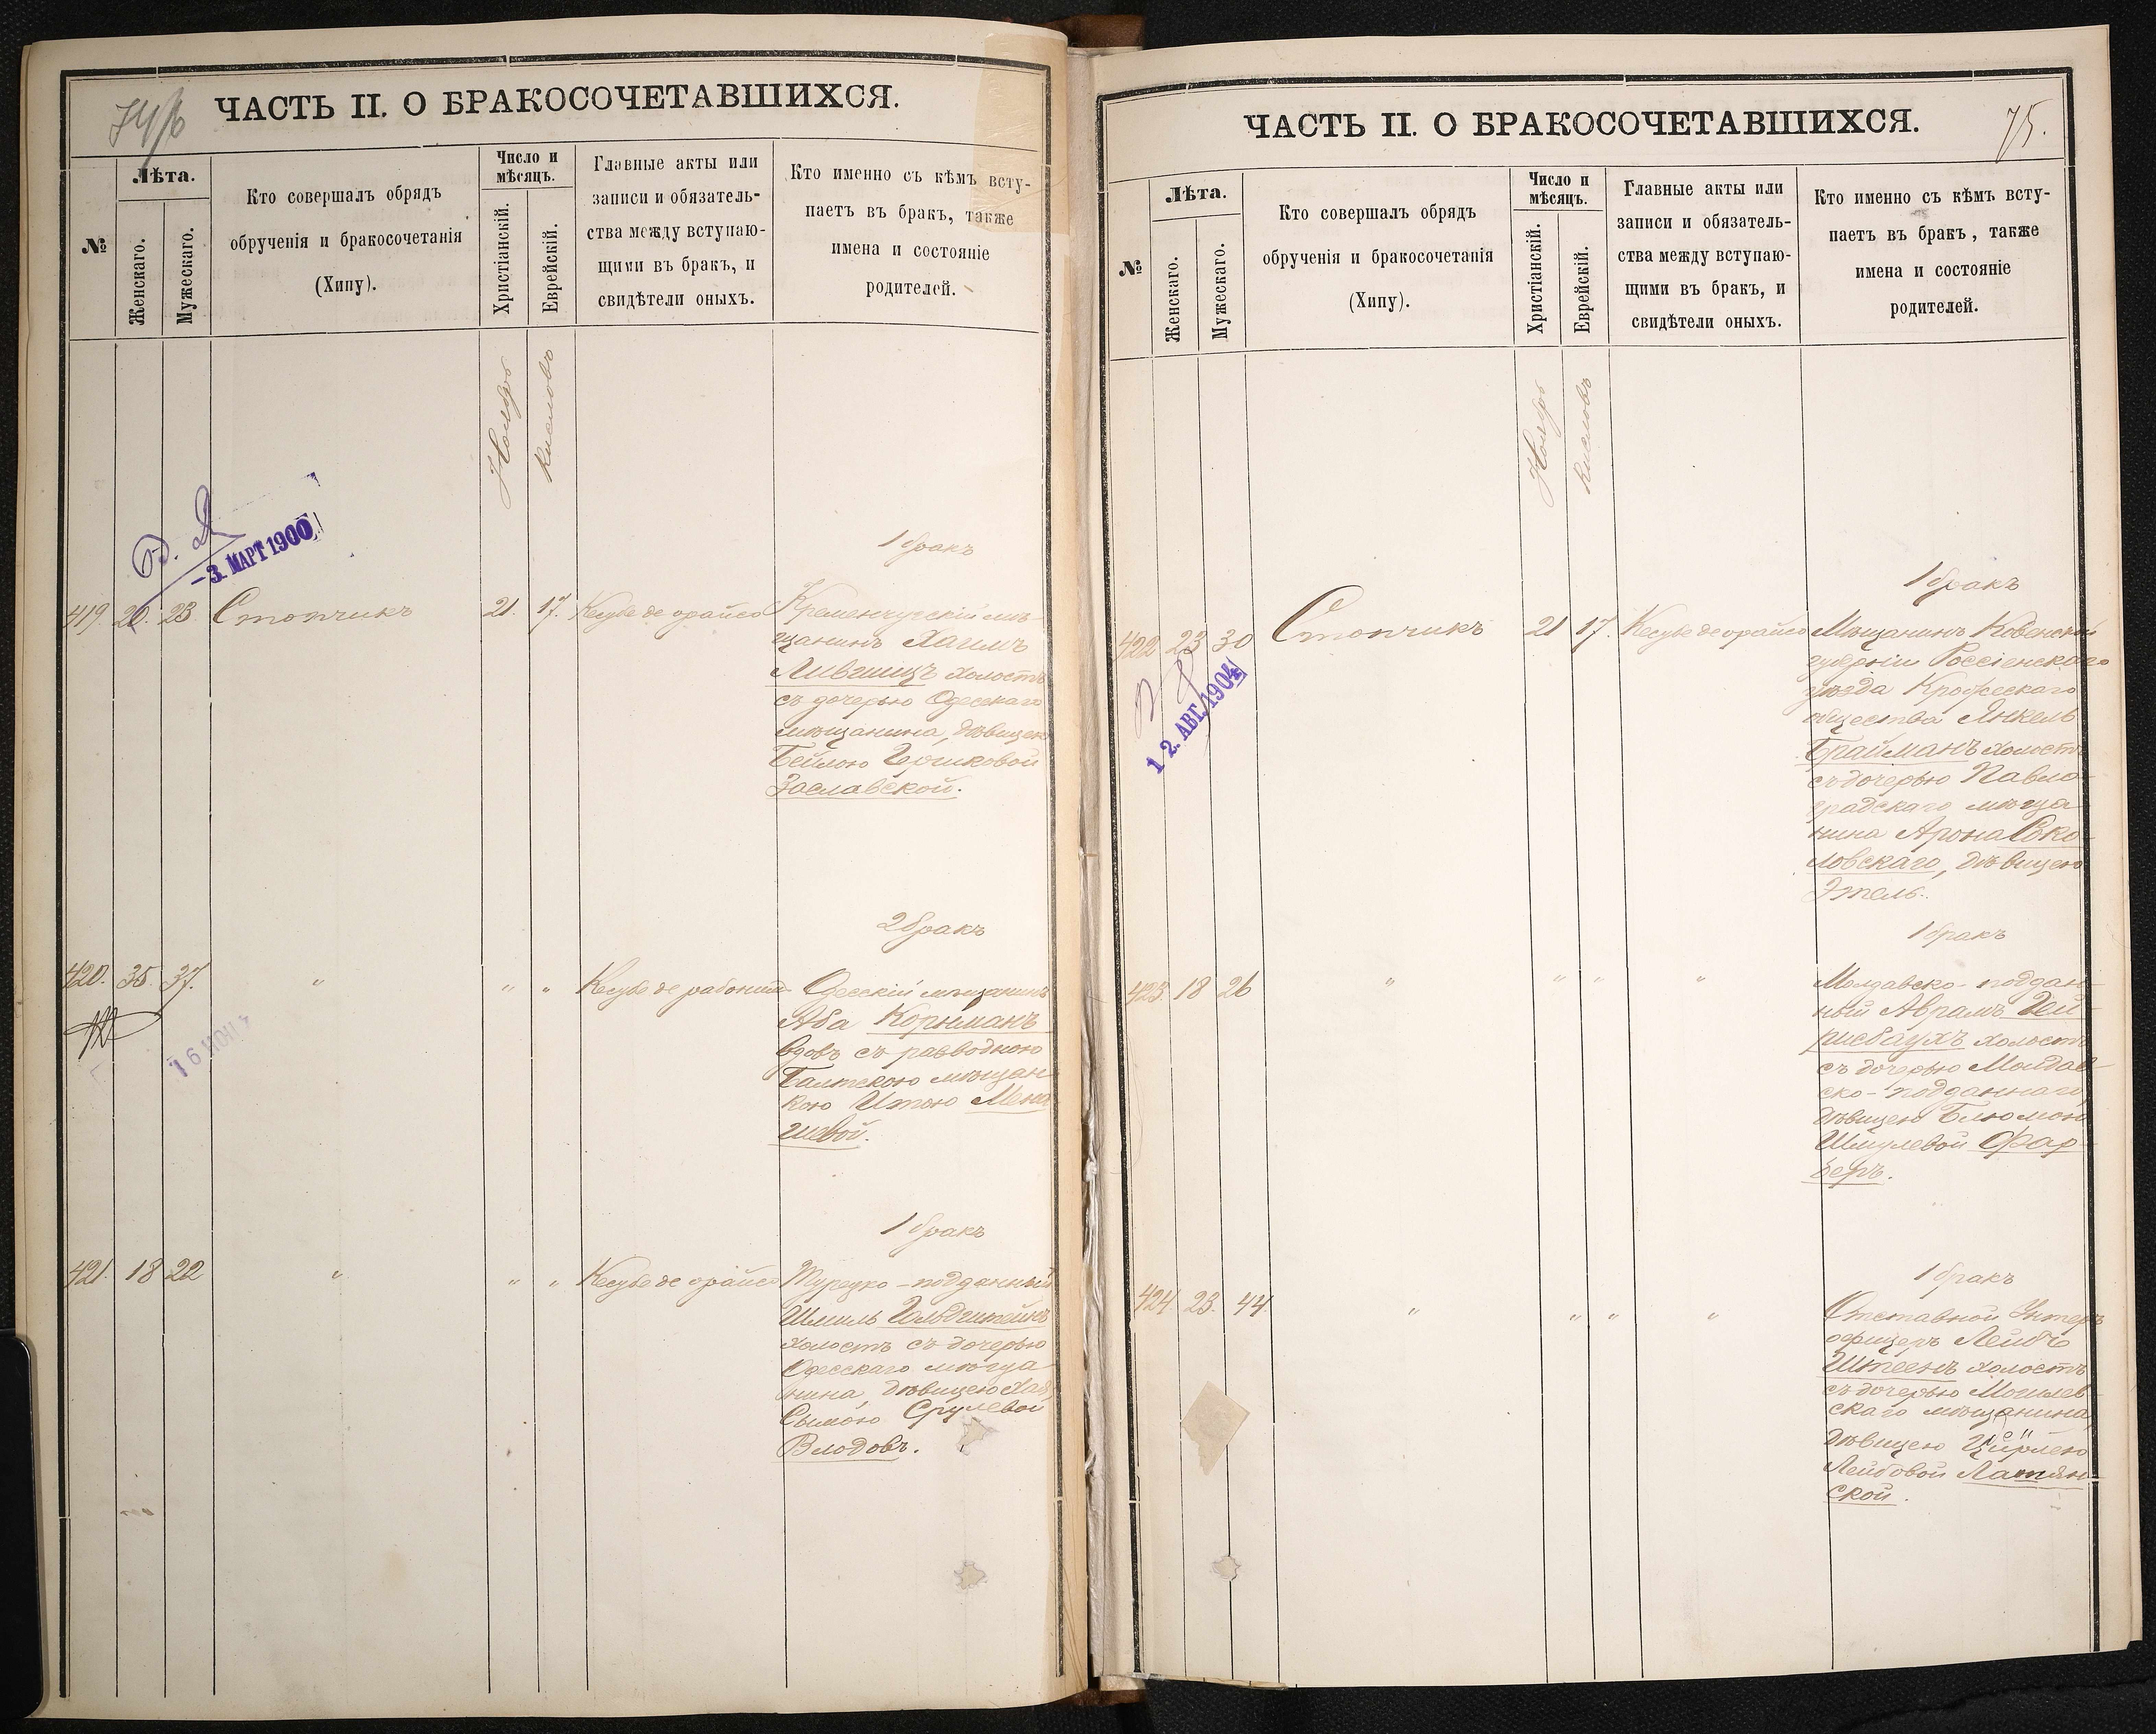 74/б
ЧАСТЬ II. О БРАКОСОЧЕТАВШИХСЯ.
№
Лѣта.
Женскаго.
Мужескаго.
Кто совершалъ обрядъ
обрученія и бракосочетанія
(Хипу).
Число и
мѣсяцъ.
Христіанскій.
Еврейскій.
Главные акты или
записи и обязатель-
ства между вступаю-
щими въ бракъ, и
свидѣтели оныхъ.
Кто именно съ кѣмъ всту-
паетъ въ бракъ, также
имена и состояніе
родителей.
Ноябрь
Кислевъ
– 3. МАРТ 1900
1 бракъ
419. 20. 23. Стопчикъ 21. 17. Кесубе де орайсо Кременчугскій мѣ-
щанинъ Хаимъ
Лившицъ холостъ
съ дочерью Одесскаго
мѣщанина, дѣвицею
Бейлою Гершковой
Заславской.
2 бракъ
420. 35. 37. " " " Кесубе де рабонин Одесскій мѣщанинъ
Аба Корнманъ
вдовъ съ разводною
Балтскою мѣщан-
кою Итою Мена-
шевой.
16 НОЯ
1 бракъ
421. 18 22 " " " Кесубе де орайсо Турецко-подданный
Шмиль Гольдштейнъ
холостъ съ дочерью
Одесскаго мѣща-
нина, дѣвицею Хая
Сымою Срулевой
Влодовъ.
75.
ЧАСТЬ II. О БРАКОСОЧЕТАВШИХСЯ.
№
Лѣта.
Женскаго.
Мужескаго.
Кто совершалъ обрядъ
обрученія и бракосочетанія
(Хипу).
Число и
мѣсяцъ.
Христіанскій.
Еврейскій.
Главные акты или
записи и обязатель-
ства между вступаю-
щими въ бракъ, и
свидѣтели оныхъ.
Кто именно съ кѣмъ всту-
паетъ въ бракъ, также
имена и состояніе
родителей.
Ноябрь
Кислевъ
1 бракъ
422 23 30 Стопчикъ 21 17. Кесубе де орайсо Мѣщанинъ Ковенской
губерніи Россіенскаго
уѣзда Крожескаго
общества Янкель
Брайманъ холостъ
съ дочерью Павло-
градскаго мѣща-
нина Арона Соко-
ловскаго, дѣвицею
Этель.
12. АВГ. 1904
1 бракъ
423. 18 26 " " " " Молдавско-поддан-
ный Аврамъ Гей-
рисбаухъ холостъ
съ дочерью Молдав-
ско-подданнаго,
дѣвицею Блюмою
Шмулевой Фар-
беръ.
1 бракъ
424. 23. 44. " " " " Отставной Унтеръ
офицеръ Лейбъ
Штеенъ холостъ
съ дочерью Могилев-
скаго мѣщанина,
дѣвицею Цирлею
Лейбовой Латян-
ской.